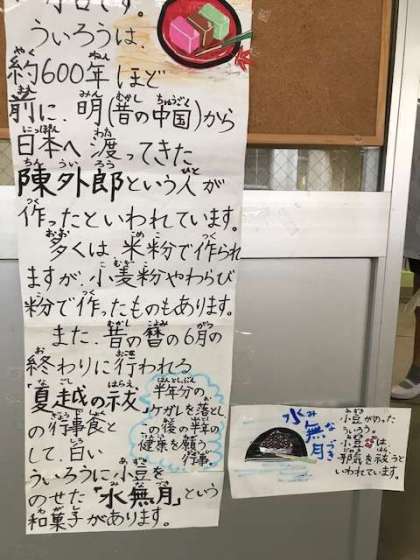 です。
ういろうは、
約600年ほど
前に、明(昔の中国)から
日本へ渡ってきた
陳外郎という人が
作ったといわれています。
多くは米粉で作られ
ますが、小麦粉やわらび
粉で作ったものもあります。
また、昔の暦の6月の
終わりに行われる
「夏越の祓」
の行事食と
して、白い
ういろうに小豆を
のせた「水無月」という
和菓子があります。
半年分の
ケガレを落とし
この後の半年の
健康を願う
行事。
水無月
小豆がのった
ういろう。
小豆は
邪気を祓うと
いわれています。